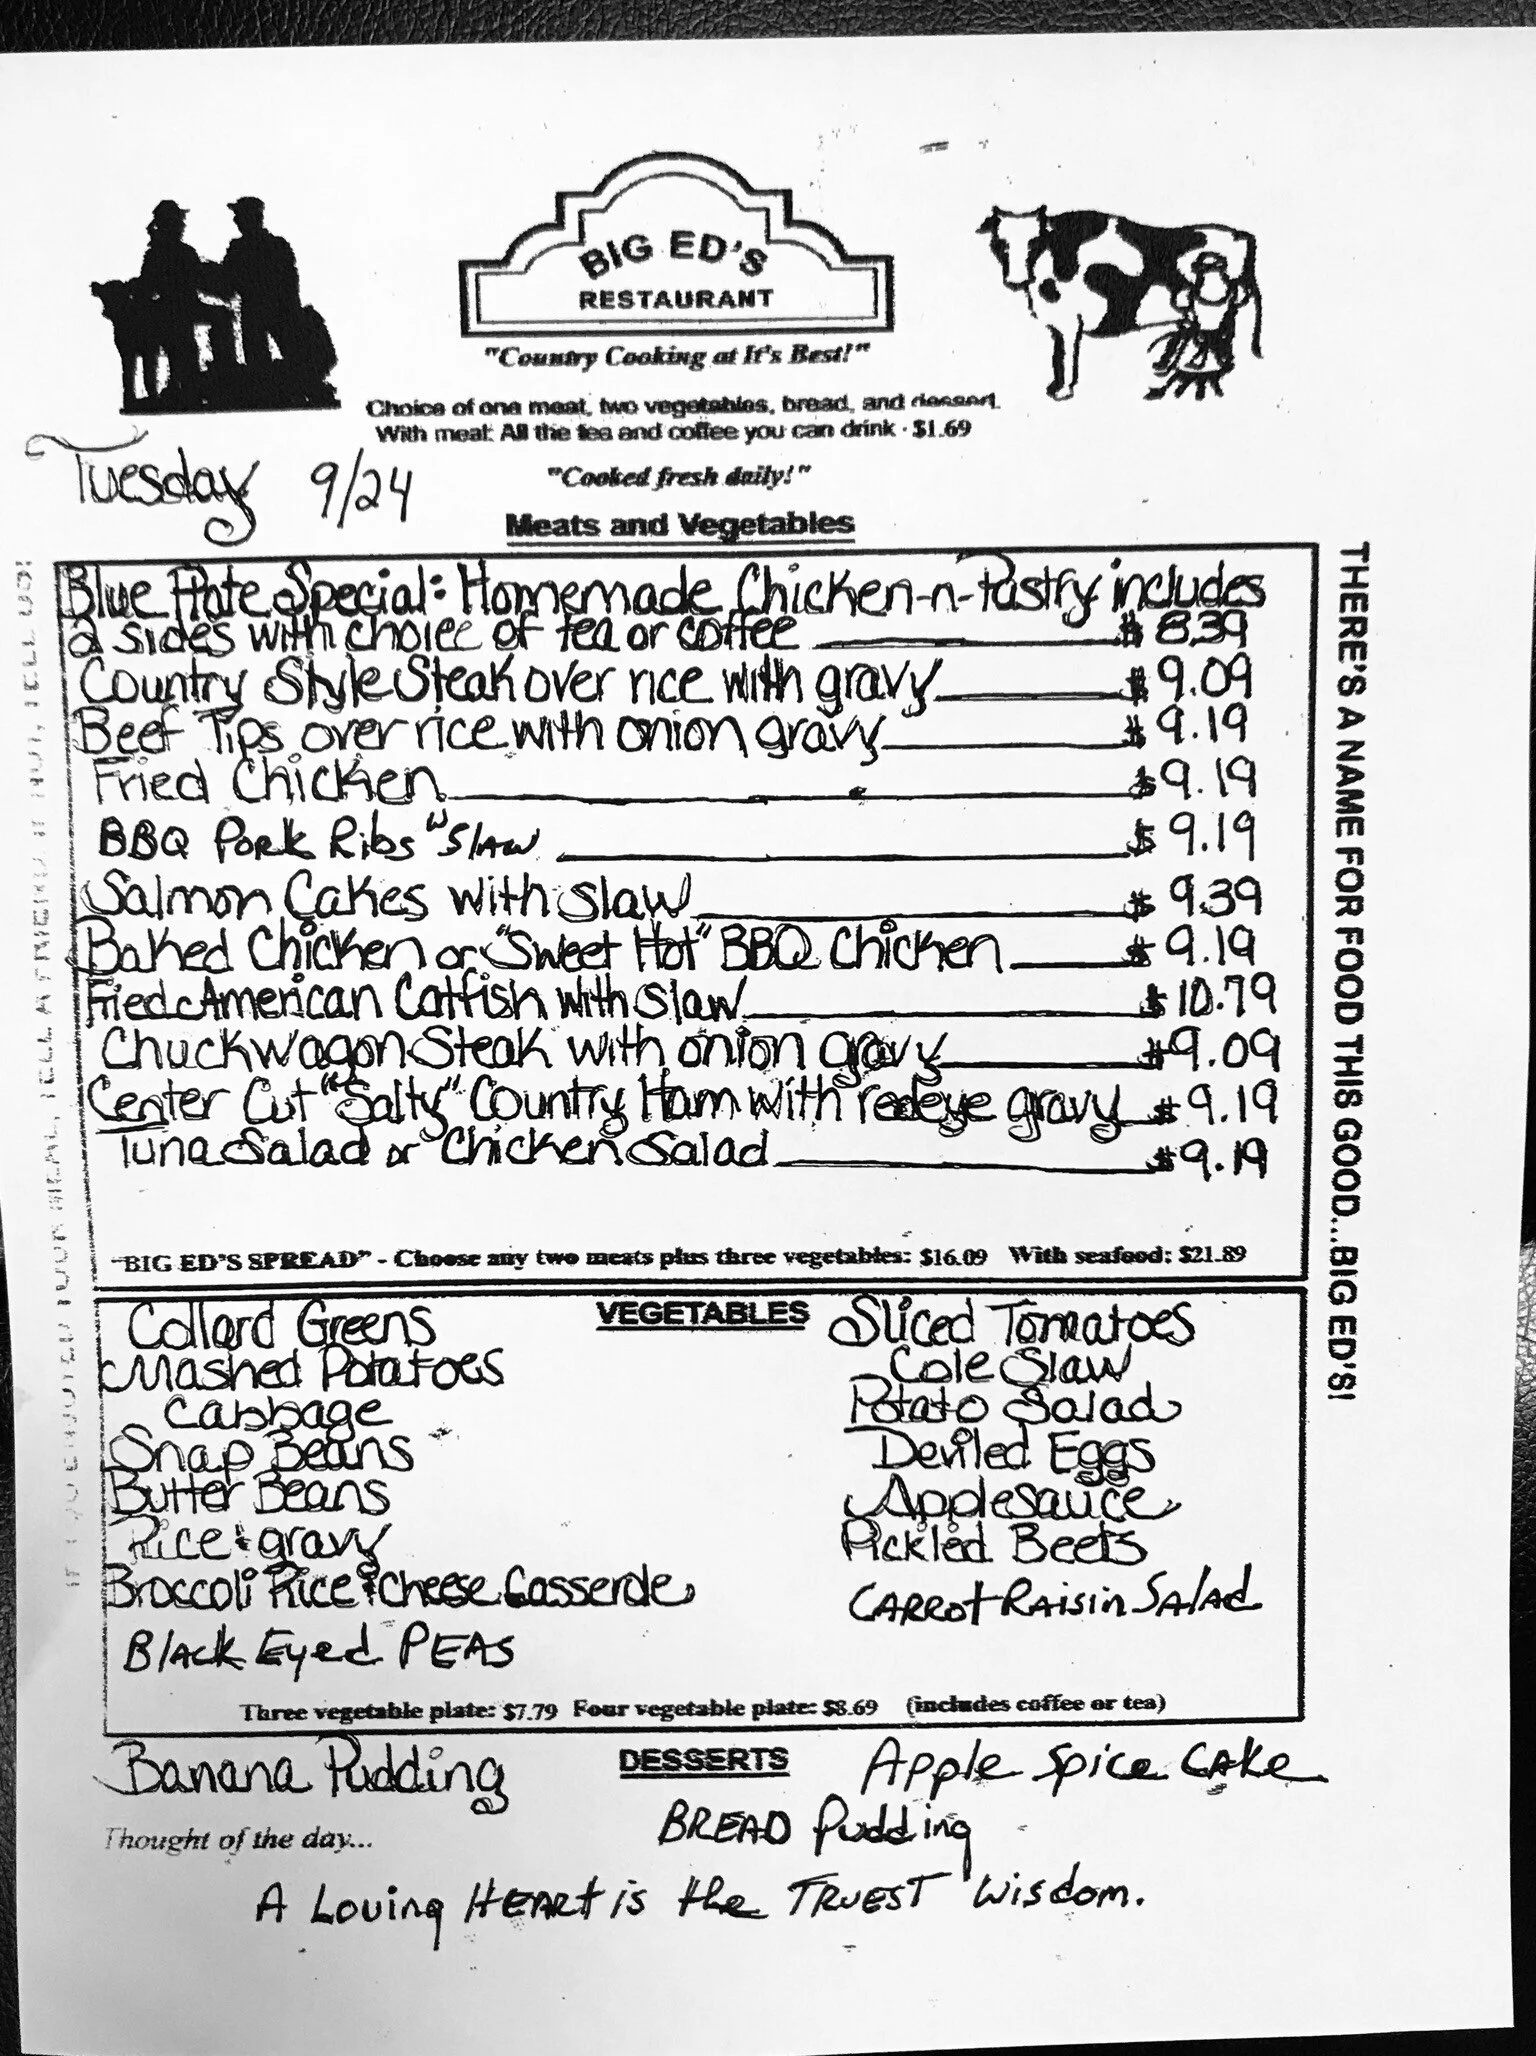 BIG ED'S
RESTAURANT
"Country Cooking at It's Best!"
Choice of one meat, two vegetables, bread, and dessert.
With meal: All the tea and coffee you can drink · $1.69
Tuesday 9/24
"Cooked fresh daily!"
Meats and Vegetables
Blue Plate Special: Homemade Chicken-n-Pastry includes
2 sides with choice of tea or coffee $8.39
Country Style Steak over rice with gravy $9.09
Beef Tips over rice with onion gravy $9.19
Fried Chicken $9.19
BBQ Pork Ribs w Slaw $9.19
Salmon Cakes with slaw $9.39
Baked Chicken or "Sweet Hot" BBQ Chicken $9.19
Fried American Catfish with slaw $10.79
Chuckwagon Steak with onion gravy $9.09
Center Cut "Salty" Country Ham with redeye gravy $9.19
Tuna Salad or Chicken Salad $9.19
"BIG ED'S SPREAD" - Choose any two meats plus three vegetables: $16.09 With seafood: $21.89
VEGETABLES
Collard Greens
Mashed Potatoes
Cabbage
Snap Beans
Butter Beans
Rice & gravy
Broccoli Rice & Cheese Casserole
Black Eyed PEAS
Sliced Tomatoes
Cole Slaw
Potato Salad
Deviled Eggs
Applesauce
Pickled Beets
CARROT Raisin SAlAd
Three vegetable plate: $7.79 Four vegetable plate: $8.69 (includes coffee or tea)
DESSERTS
Banana Pudding
Apple Spice Cake
BREAD Pudding
Thought of the day...
A Loving HEARt is the TRUEST Wisdom.
THERE'S A NAME FOR FOOD THIS GOOD...BIG ED'S!
IF YOU ENJOYED YOUR MEAL, TELL A FRIEND. IF NOT, TELL US!